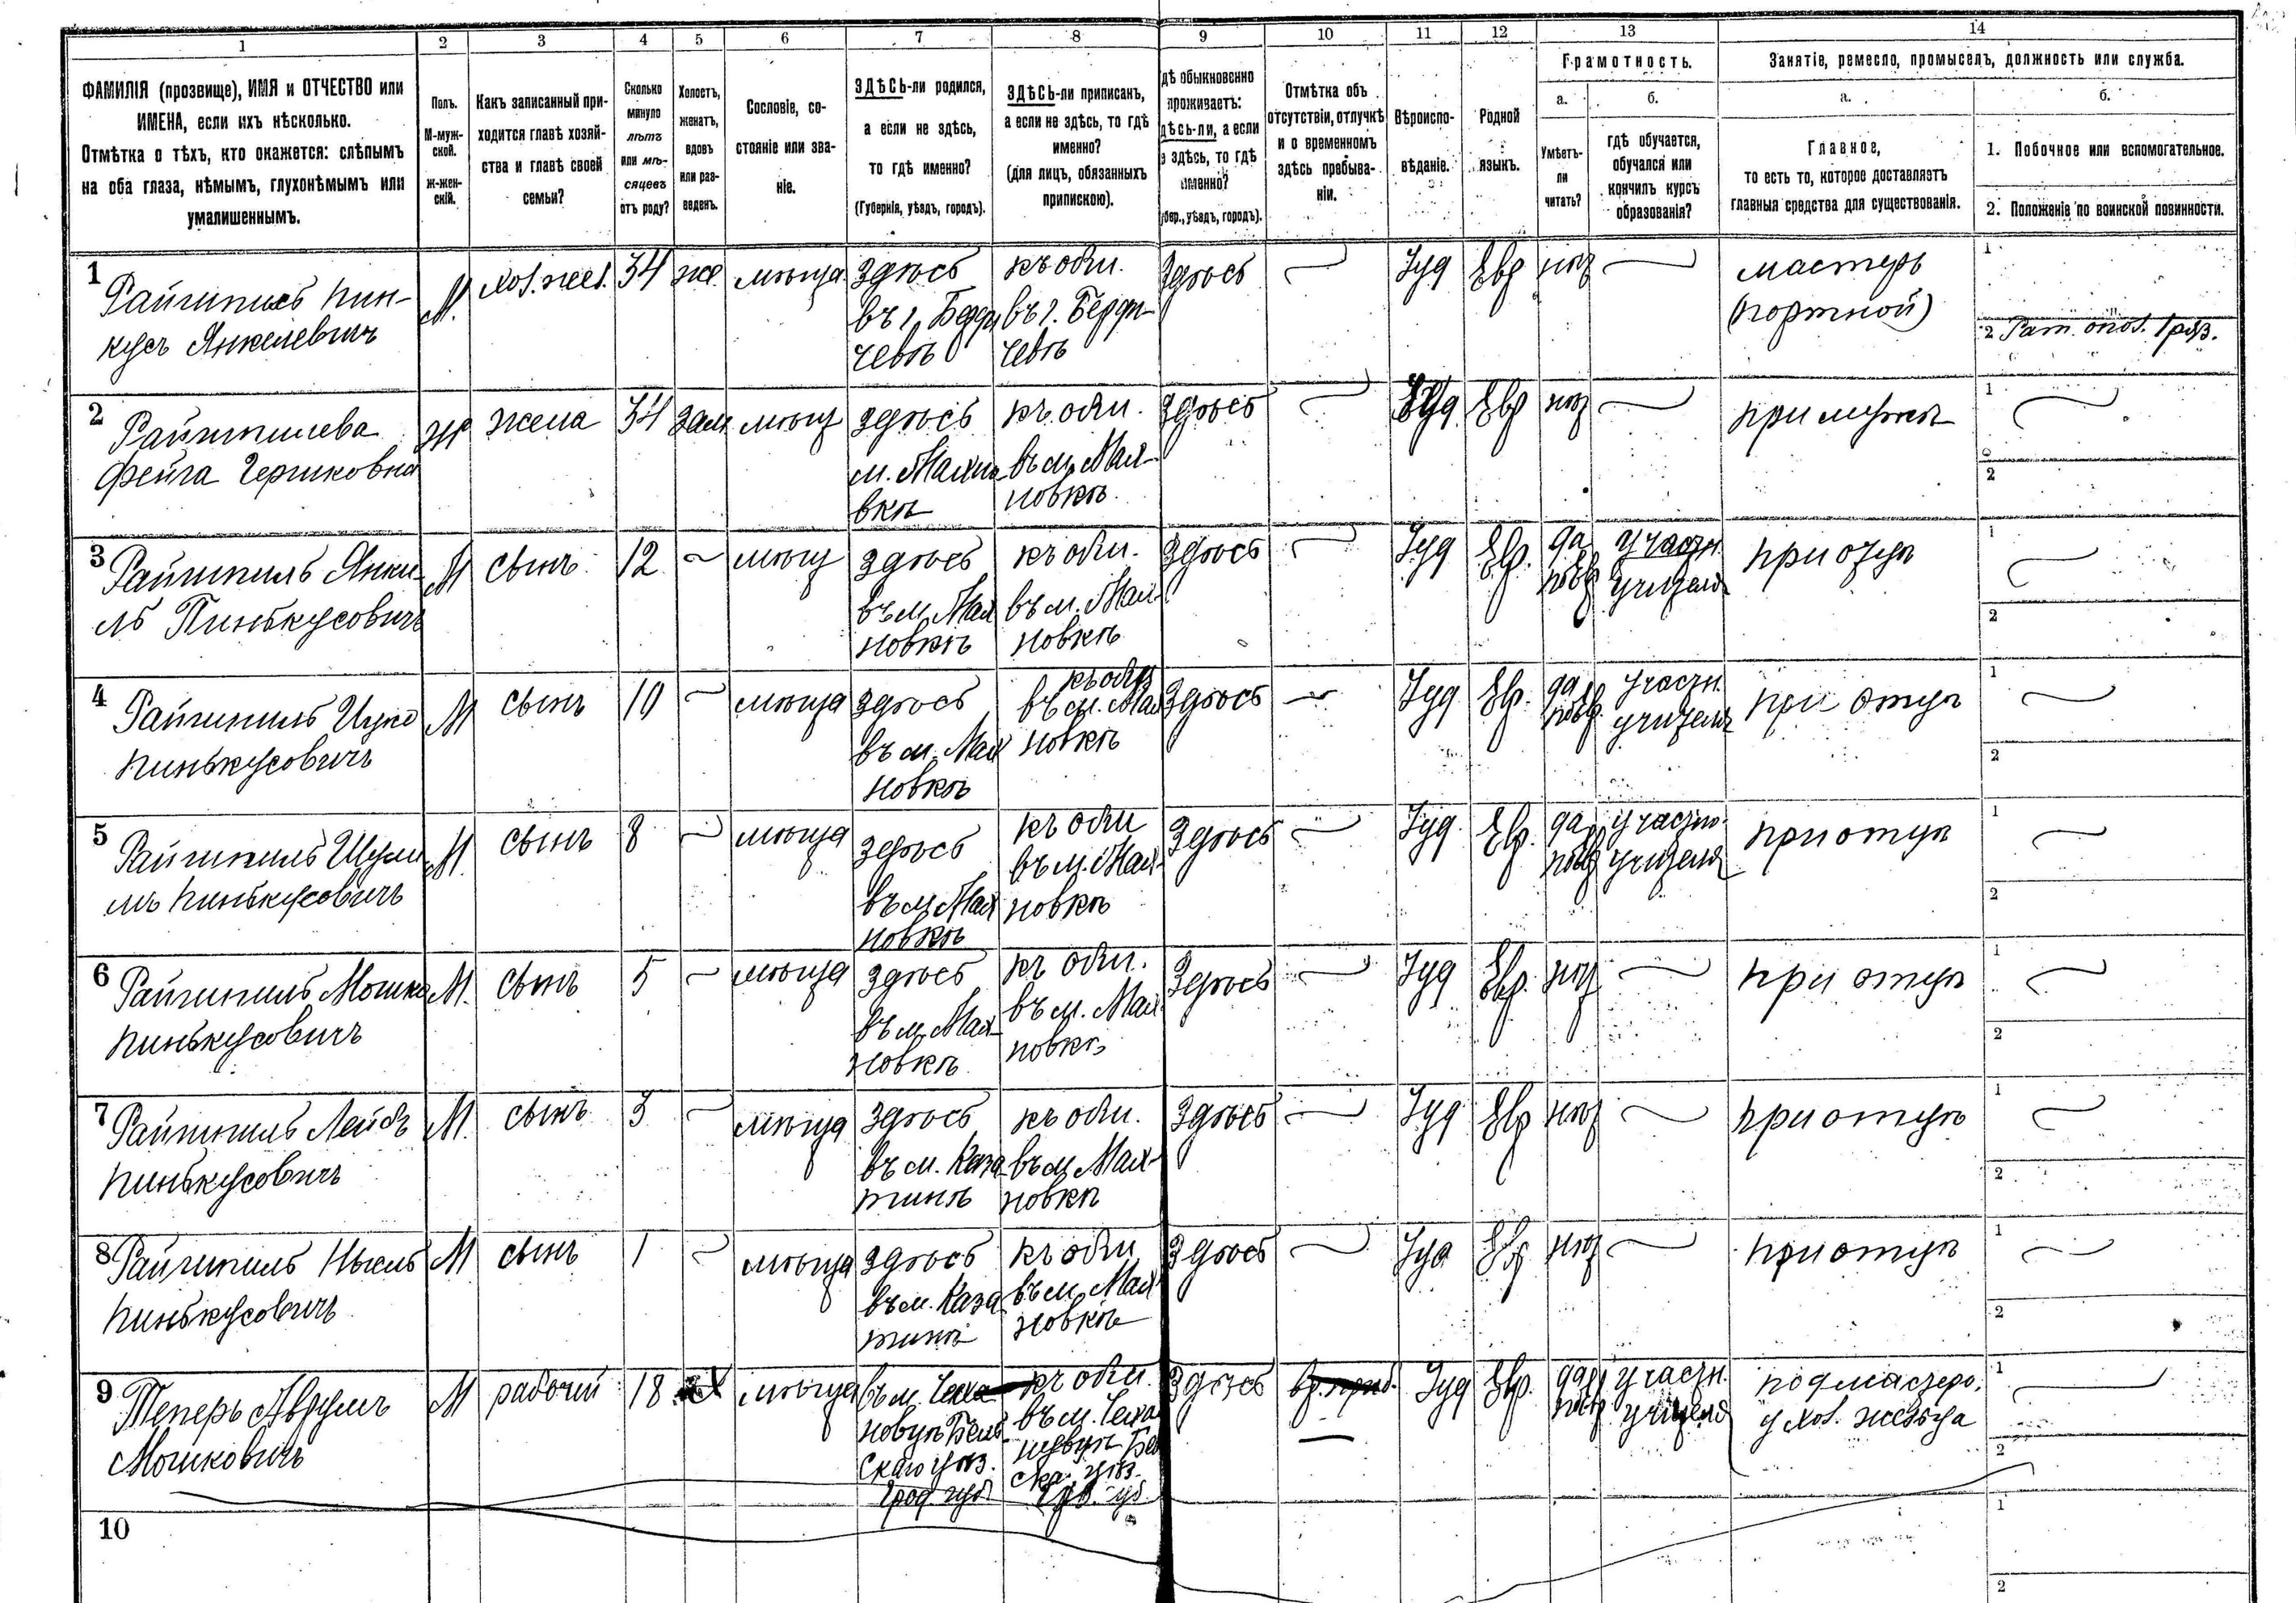 1 2 3 4 5 6 7 8 9 10 11 12 13 14
ФАМИЛІЯ (прозвище), ИМЯ и ОТЧЕСТВО или
ИМЕНА, если ихъ нѣсколько.
Отмѣтка о тѣхъ, кто окажется: слѣпымъ
на оба глаза, нѣмымъ, глухонѣмымъ или
умалишеннымъ.
Полъ.
М-муж-
ской.
ж-жен-
скій.
Какъ записанный при-
ходится главѣ хозяй-
ства и главѣ своей
семьи?
Сколько
минуло
лѣтъ
или мѣ-
сяцевъ
отъ роду?
Холостъ,
женатъ,
вдовъ
или раз-
веденъ.
Сословіе, со-
стояніе или зва-
ніе.
ЗДѢСЬ-ли родился,
а если не здѣсь,
то гдѣ именно?
(Губернія, уѣздъ, городъ).
ЗДѢСЬ-ли приписанъ,
а если не здѣсь, то гдѣ
именно?
(для лицъ, обязанныхъ
припискою).
дѣ обыкновенно
проживаетъ:
дѣсь-ли, а если
э здѣсь, то гдѣ
именно?
убер., уѣздъ, городъ).
Отмѣтка объ
отсутствіи, отлучкѣ
и о временномъ
здѣсь пребыва-
ніи.
Вѣроиспо-
вѣданіе.
Родной
языкъ.
Грамотность.
а.
Умѣетъ-
ли
читать?
б.
гдѣ обучается,
обучался или
кончилъ курсъ
образованія?
Занятіе, ремесло, промыселъ, должность или служба.
а.
Главное,
то есть то, которое доставляетъ
главныя средства для существованія.
б.
1. Побочное или вспомогательное.
2. Положеніе по воинской повинности.
1
Пин-
кусъ Янкелевичъ
М.
34
мѣща
здѣсь
въ г. Берди
чевѣ
къ общ.
въ г. Берди-
чевѣ
Здѣсь
Іуд
Евр
нѣт
мастеръ
(портной)
1
2
2
Фейга Гершковна
жена
34
зам
мѣщ
здѣсь
м. Махно
вкѣ
къ общ.
въ м. Мах-
новкѣ
Здѣсь
Евр
нѣт
при мужѣ
1
2
3
Райгипиль Янки-
ль Пинькусовичъ
М
сынъ
12
мѣщ
здѣсь
въ м. Мах
новкѣ
къ общ.
въ м. Мах-
новкѣ
Здѣсь
Іуд
Евр.
да
у частн.
учителя
при отцѣ
1
2
4
Райгипиль Ицко
Пинькусовичъ
М
сынъ
10
мѣща
здѣсь
въ м. Мах
новкѣ
къ общ
въ м. Мах
новкѣ
Здѣсь
Іуд
Евр.
да
у частн.
учителя
при отцѣ
1
2
5
Райгипиль Шули
мъ Пинькусовичъ
М.
сынъ
8
мѣща
здѣсь
въ м. Мах
новкѣ
къ общ
въ м. Мах-
новкѣ
Здѣсь
Іуд
Евр.
да
у частн.
учителя
при отцѣ
1
2
6
Райгипиль Мошко
Пинькусовичъ
М.
сынъ
5
мѣща
здѣсь
въ м. Мах-
новкѣ
къ общ.
въ м. Мах
новкѣ
Здѣсь
Іуд
Евр.
нѣт
при отцѣ
1
2
7
Райгипиль Лейбъ
Пинькусовичъ
М.
сынъ
3
мѣща
здѣсь
въ м. Каза
тинѣ
къ общ.
въ м. Мах-
новкѣ
Здѣсь
Іуд
Евр
нѣт
при отцѣ
1
2
8
Райгипиль
Пинькусовичъ
М
сынъ
1
мѣща
здѣсь
въ м. Каза
тинѣ
къ общ
въ м. Мах
новкѣ
Здѣсь
Іуд
Евр
нѣт
при отцѣ
1
2
9
Теперъ Аврумъ
Мошковичъ
М
рабочій
18
мѣща
въ м.
скаго уѣз.
Грод губ
къ общ.
въ м.
Здѣсь
Іуд
Евр.
да
у частн.
учителя
подмастеръ
у хоз.
1
2
10
1
2